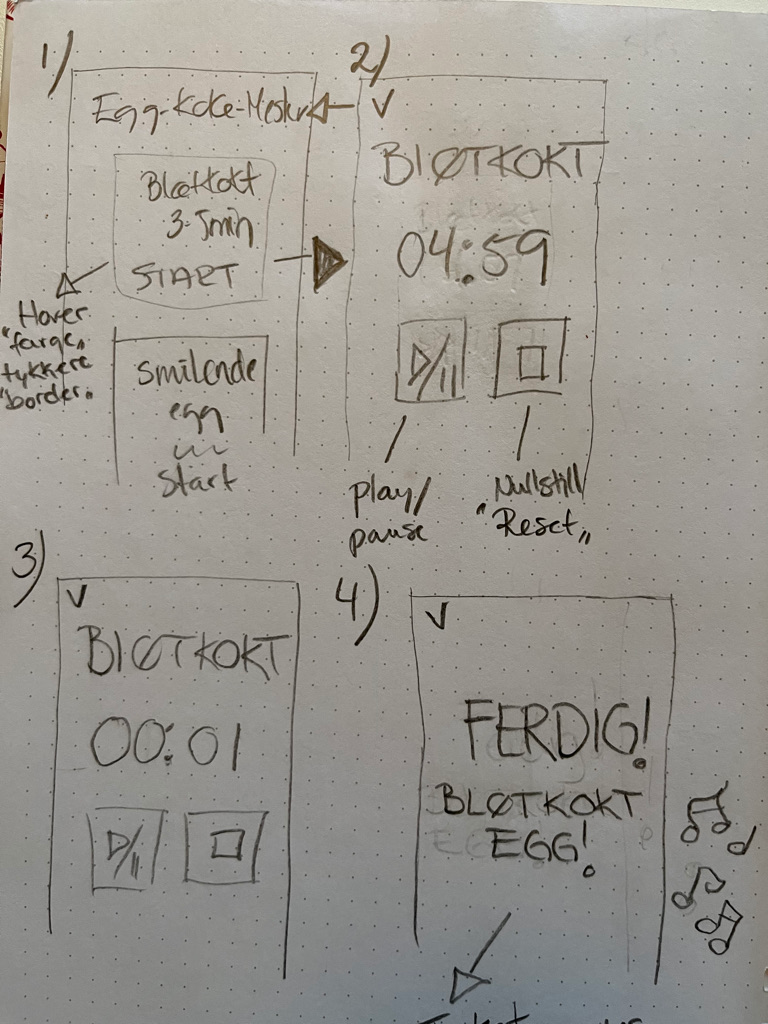 1)
Egg-Koke-Mester
Bløtkokt
3-5min
START
Hover
"farge"
tykkere
"border"
Smilende
egg
Start
2)
V
BLØTKOKT
04:59
play/
pause
Nullstill
"Reset"
3)
V
BLØTKOKT
00:01
4)
V
FERDIG!
BLØTKOKT
EGG!